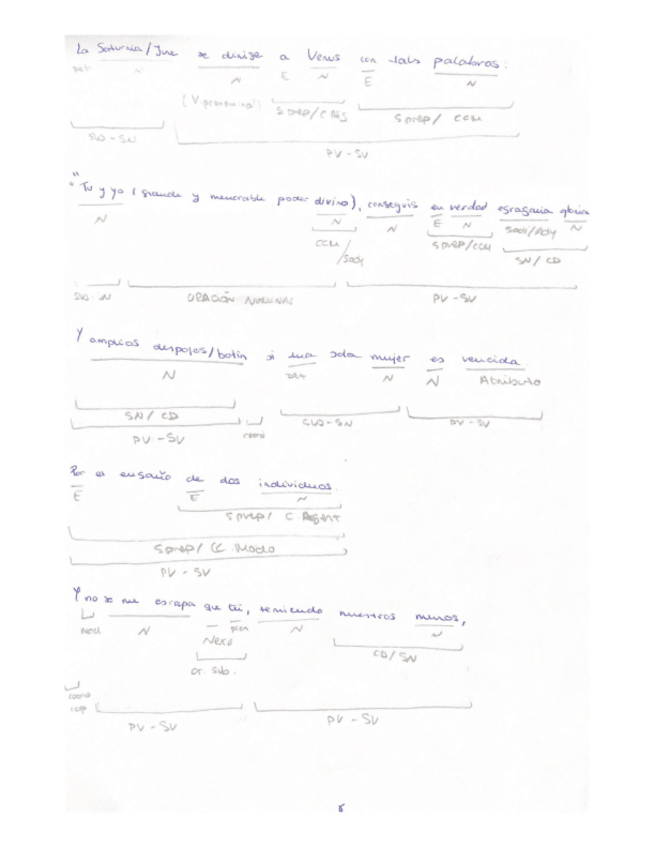 La Saturnia/June se dirige a Venus con tals palabras:
Det N N E N E N
(V. pronominal) Sprep/C Rég Sprep/ CCM
SUJ-SN
PV-SV
"Tú y yo (grande y memorable poder divino), conseguis en verdad egragaria gloria
N N N E N Sadj/Ady N
CCM/Sady Sprep/CCM SN/CD
SUJ-N ORACIÓN NOMINAL PV-SV
Y amplios despojos/botín si una sola mujer es vencida.
N Det N N Atributo
SN/CD SUJ-SN PV-SV
PV-SV
Por el engaño de dos individuos.
E E N
Sprep/ C. Agent
Sprep/ CC. Modo
PV-SV
Y no se me escapa que tú, temiendo nuestros muros,
N Nexo N N
CD/SN
or. sub.
coord
cop
PV-SV PV-SV